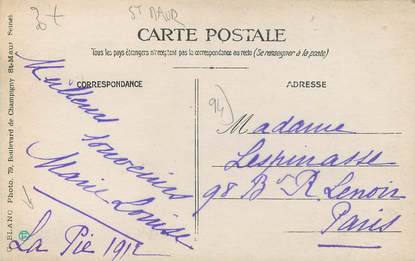 3+
ST MAUR
CARTE POSTALE
Tous les pays étrangers n'acceptent pas la correspondance au recto (Se renseigner à la poste)
CORRESPONDANCE
ADRESSE
94
Meilleurs
souvenirs
Marie Louise
La Pie 1912
Madame
Lespinasse
98 Bd R. Lenoir
Paris
BLANC Photo, 79, Boulevard de Champigny St-Maur Seine